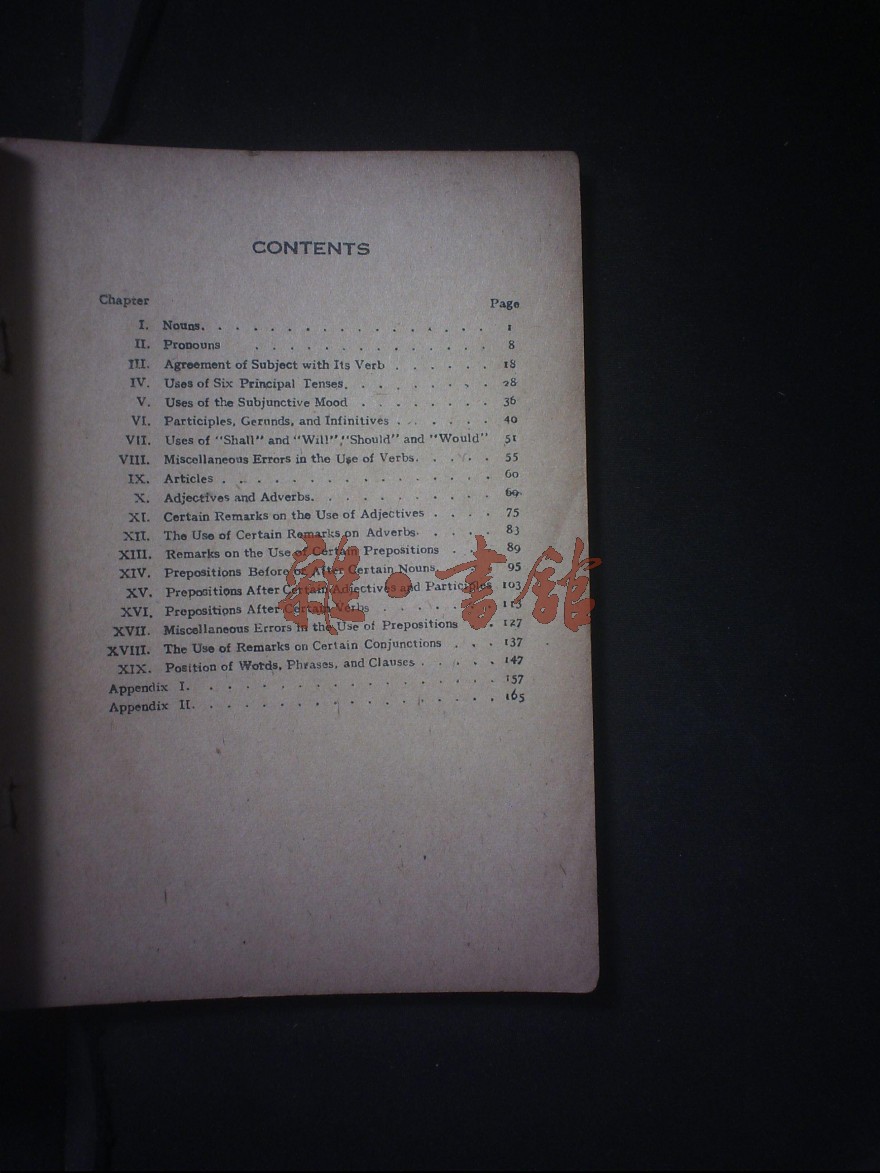 CONTENTS
Chapter Page
I. Nouns. . . . . . . . . . . . . . . . . 1
II. Pronouns . . . . . . . . . . . . . . 8
III. Agreement of Subject with Its Verb . . . . . . 18
IV. Uses of Six Principal Tenses. . . . . . . . . 28
V. Uses of the Subjunctive Mood . . . . . . . . 36
VI. Participles, Gerunds, and Infinitives . . . . . . 40
VII. Uses of "Shall" and "Will","Should" and "Would" 51
VIII. Miscellaneous Errors in the Use of Verbs. . . . . 55
IX. Articles . . . . . . . . . . . . . . . . 60
X. Adjectives and Adverbs. . . . . . . . . . . 69
XI. Certain Remarks on the Use of Adjectives . . . . 75
XII. The Use of Certain Remarks on Adverbs. . . . . 83
XIII. Remarks on the Use of Certain Prepositions . . . 89
XIV. Prepositions Before or After Certain Nouns. . . . 95
XV. Prepositions After Certain Adjectives and Participles 103
XVI. Prepositions After Certain Verbs . . . . . . . 113
XVII. Miscellaneous Errors in the Use of Prepositions . . 127
XVIII. The Use of Remarks on Certain Conjunctions . . . 137
XIX. Position of Words, Phrases, and Clauses . . . . . 147
Appendix I. . . . . . . . . . . . . . . . . . 157
Appendix II. . . . . . . . . . . . . . . . . 165
雜·書館